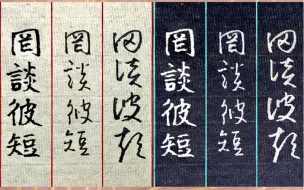 罔談彼短
罔談彼短
罔談彼短
罔談彼短
罔談彼短
罔談彼短